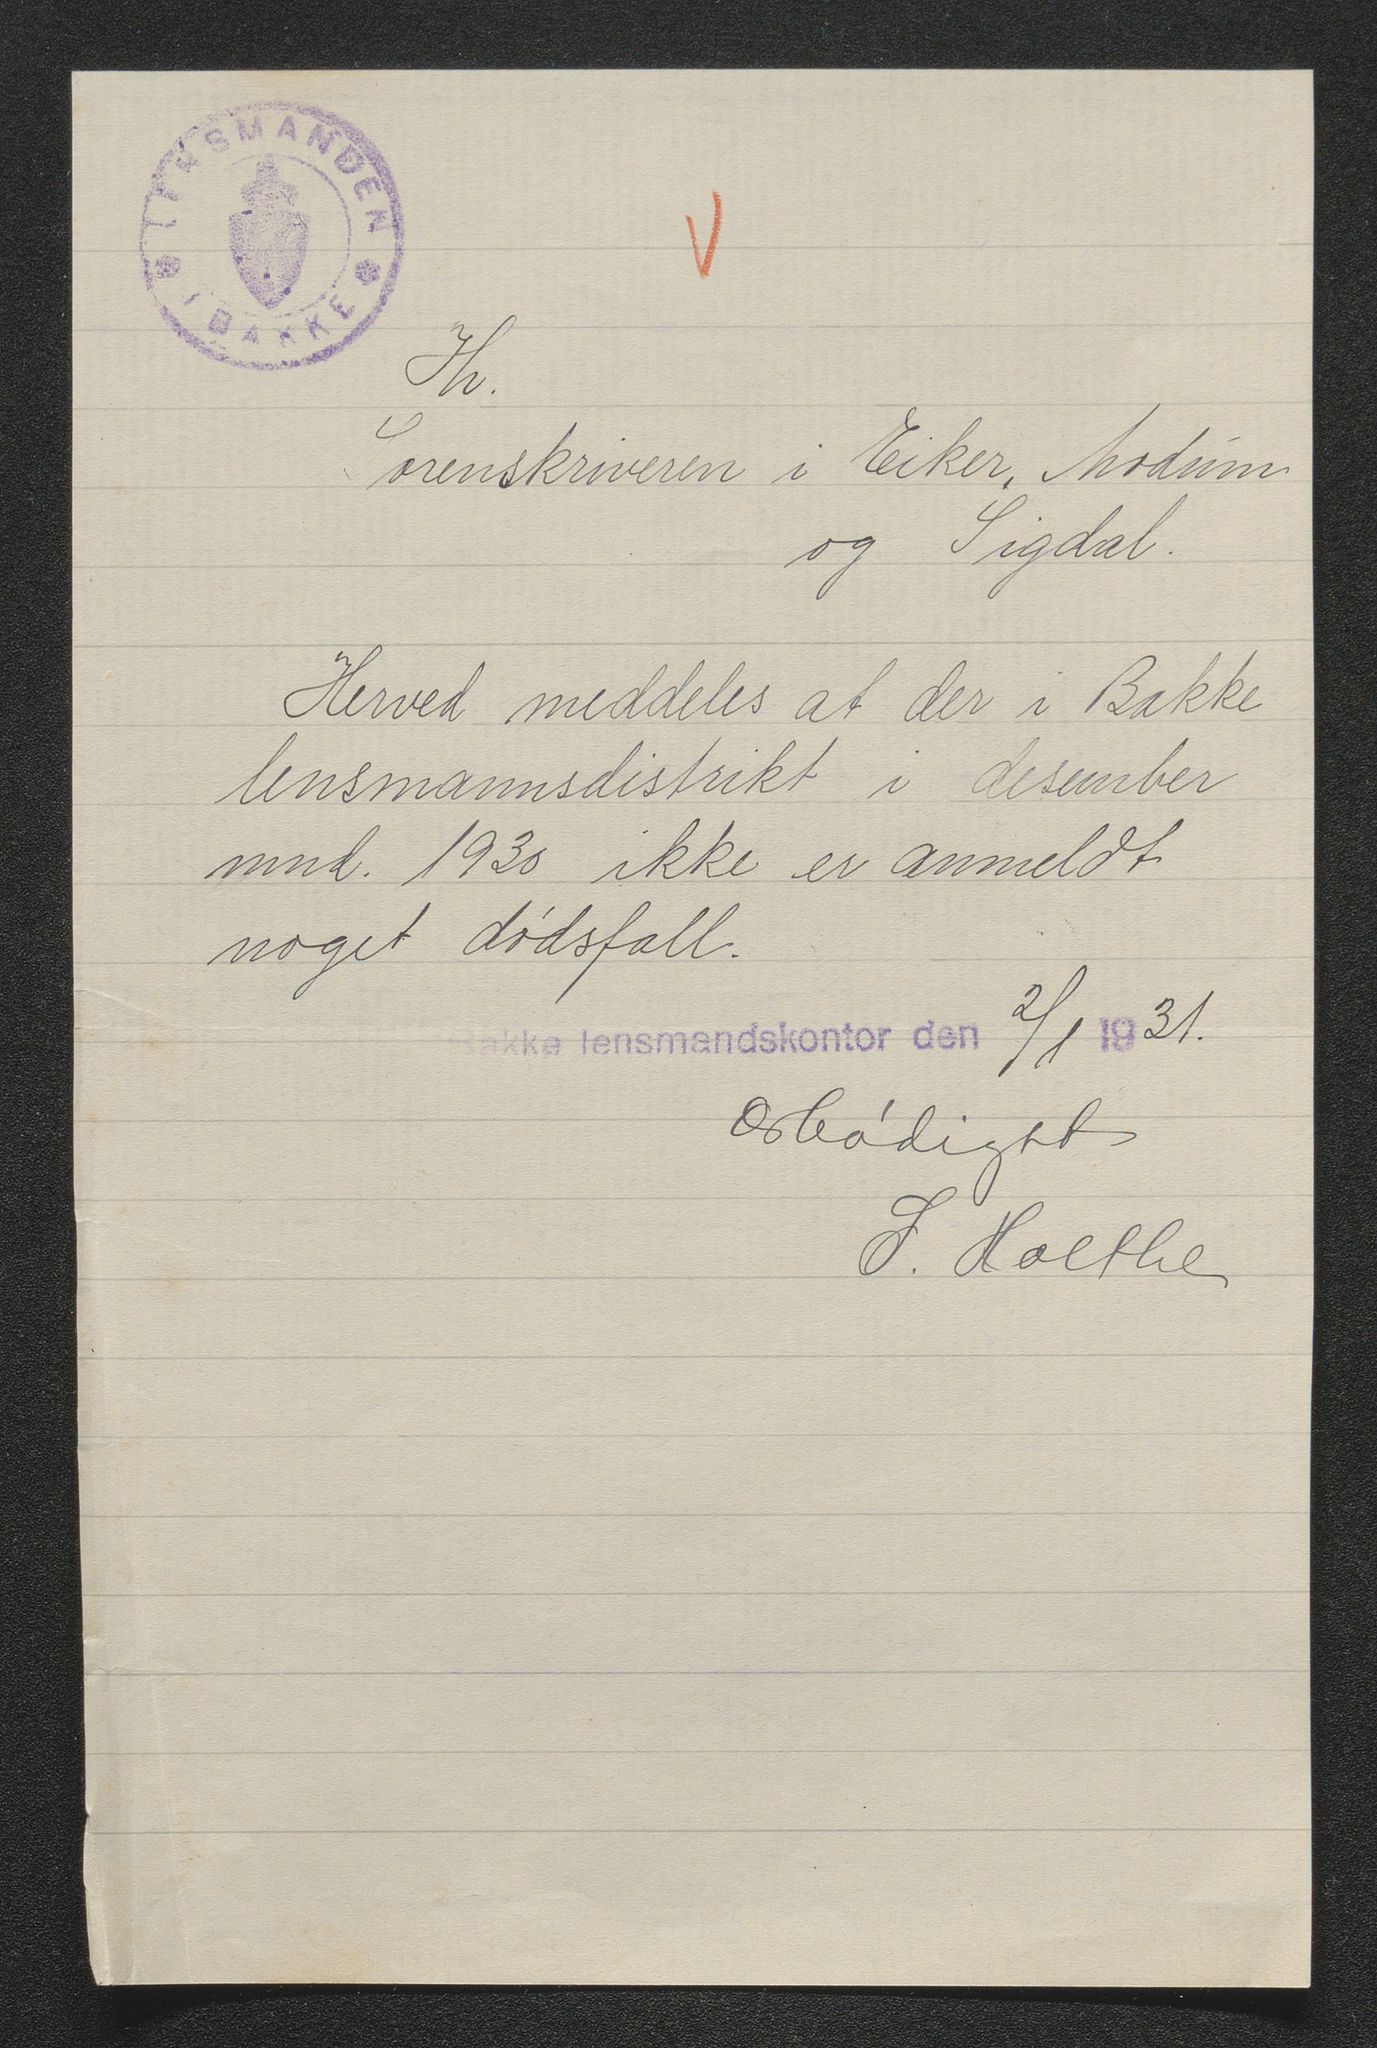 LENSMANDEN
I BAKKE
V
Hr.
Sorenskriveren i Eiker, Modum
og Sigdal.
Herved meddeles at der i Bakke
lensmannsdistrikt i desember
mnd. 1930 ikke er anmeldt
noget dødsfall.
Bakke lensmandskontor den 2/1 1931.
Ærbødigst
F. Holthe